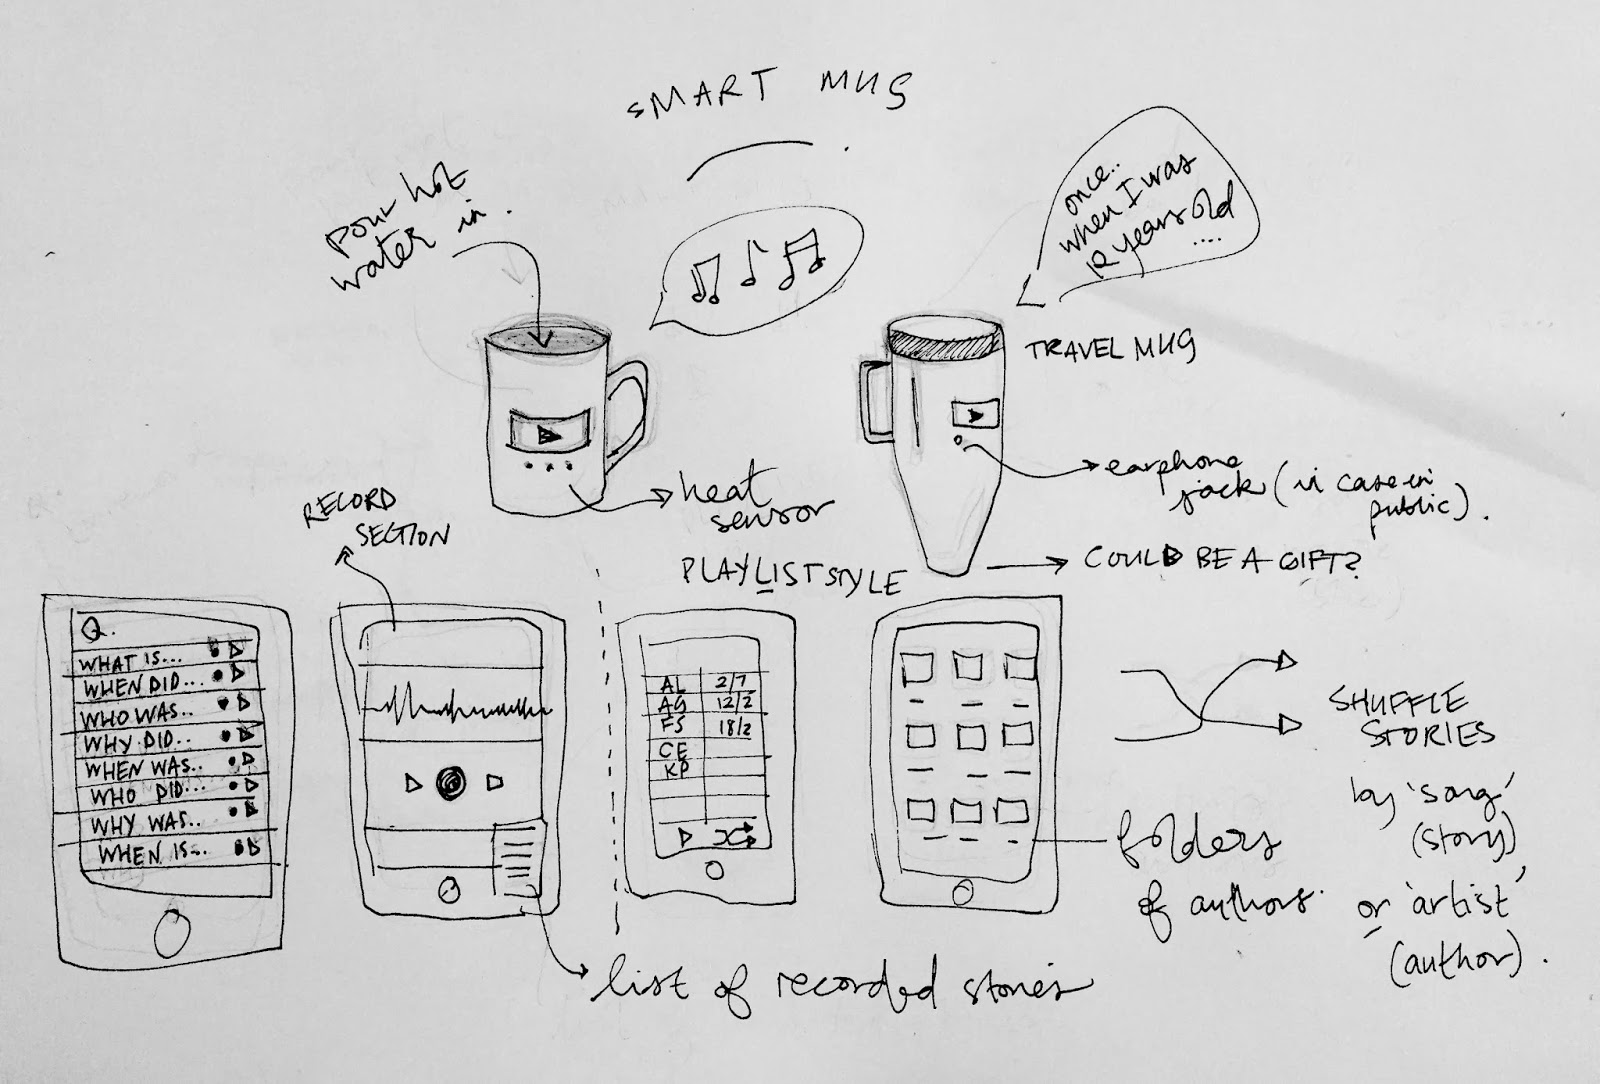 SMART MUG
pour hot
water in.
once..
when I was
12 years old
....
TRAVEL MUG
earphone
jack (in case in
public).
heat
sensor
COULD BE A GIFT?
RECORD
SECTION
PLAYLIST STYLE
Q.
WHAT IS...
WHEN DID...
WHO WAS..
WHY DID..
WHEN WAS..
WHO DID...
WHY WAS..
WHEN IS...
AL 2/7
AG 12/2
FS 18/2
CE
KP
SHUFFLE
STORIES
by 'song'
(story)
or 'artist'
(author).
folders
of authors.
list of recorded stories